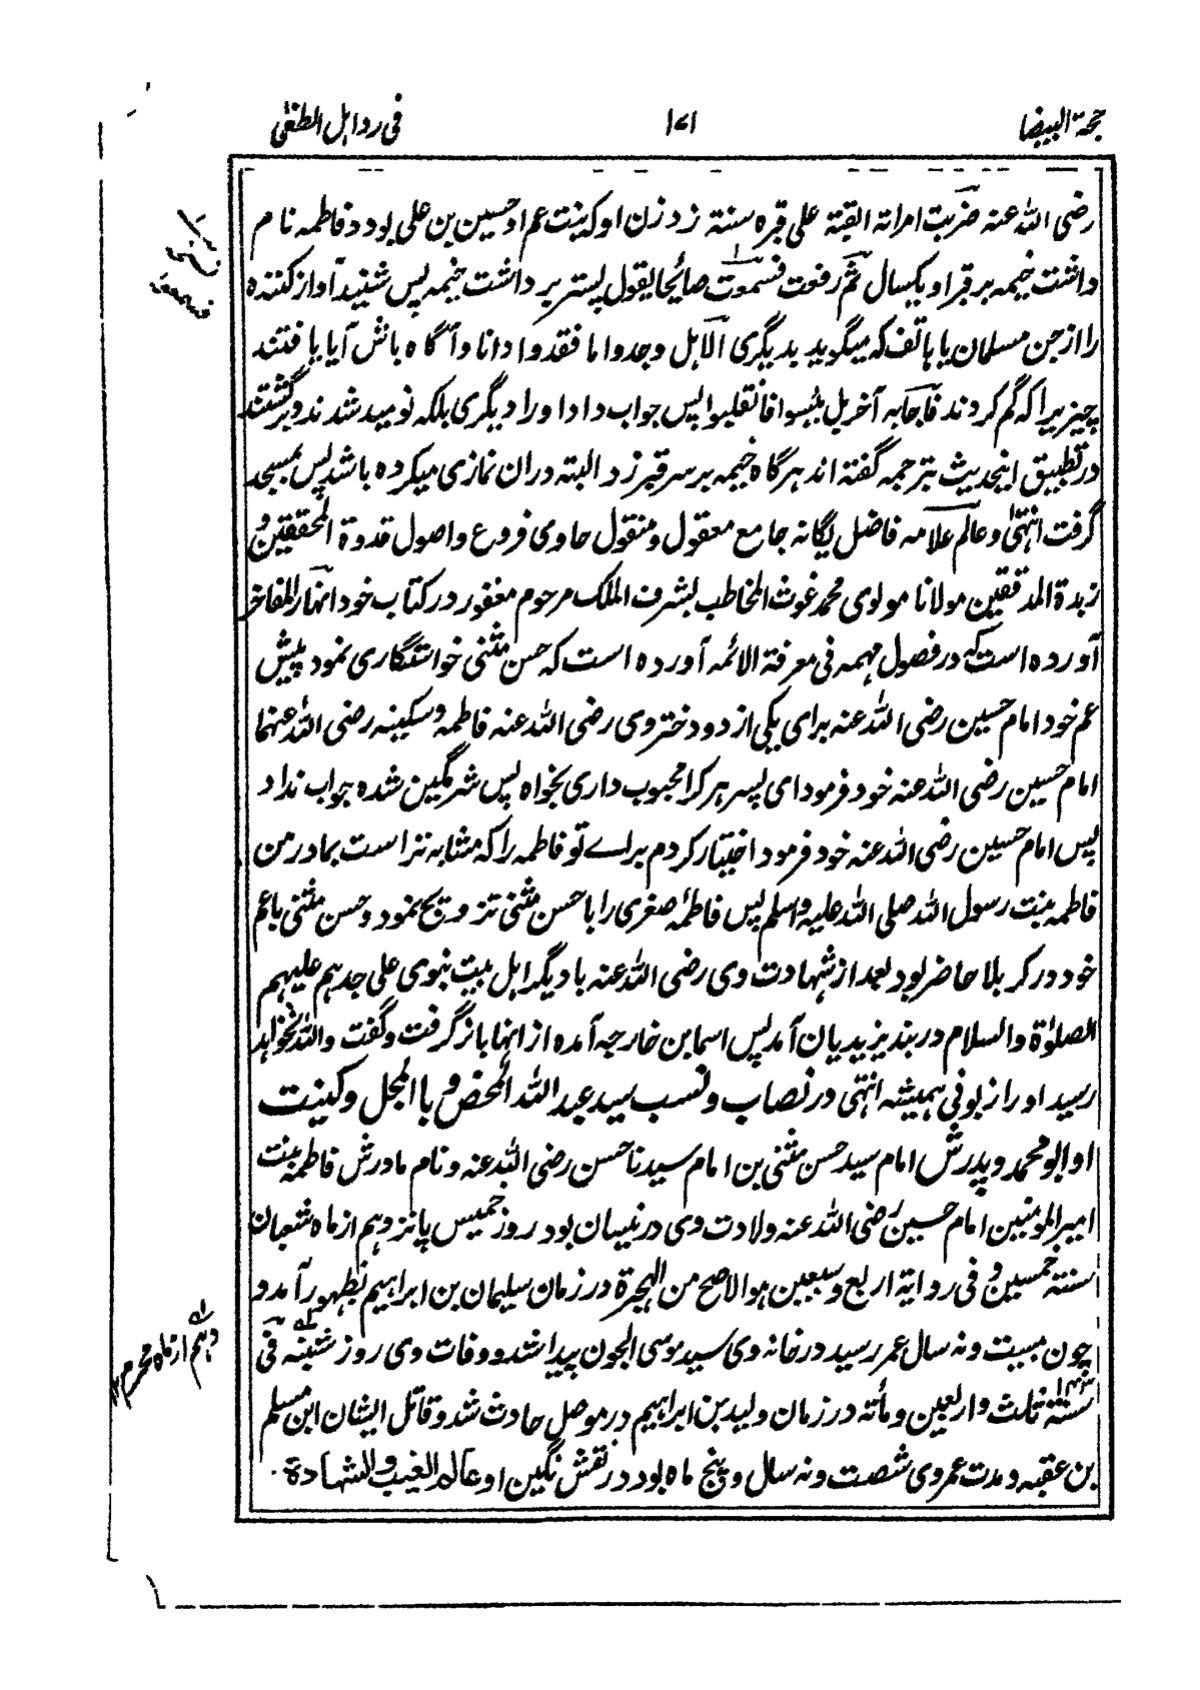 حجة البیضا ۱۷۱ فی رد اہل الطغیٰ
رضی اللہ عنہ ضربت امراتہ القبۃ علی قبرہ سنۃ زد زن او کہ بنت عم او حسین بن علی بود و فاطمہ نام
داشت خیمہ بر قبر او یکسال ثم رفعت فسمعت صائحا یقول پستر برداشت خیمہ پس شنید آواز کنندہ
را از جن مسلمان یا ہاتف کہ میگوید بدیگری الا ہل وجدوا ما فقدوا دانا و آگاہ باش آیا یافتند
چیزیرا کہ گم کردند فاجابہ آخر بل یئسوا فانقلبوا پس جواب داد او را دیگری بلکہ نومید شدند و برگشتند
در تطبیق اینحدیث بترجمہ گفتہ اند ہرگاہ خیمہ بر سر قبر زد البتہ دران نمازی میکردہ باشد پس مسجد
گرفت انتہیٰ و عالم علامہ فاضل یگانہ جامع معقول و منقول حاوی فروع و اصول قدوۃ المحققین و
زبدۃ المدققین مولانا مولوی محمد غوث المخاطب بشرف الملک مرحوم مغفور در کتاب خود انہار المفاخر
آوردہ است کہ در فصول مہمہ فی معرفۃ الائمہ آوردہ است کہ حسن مثنی خواستگاری نمود پیش
عم خود امام حسین رضی اللہ عنہ برای یکی از دو دختر وی رضی اللہ عنہ فاطمہ و سکینہ رضی اللہ عنہما
امام حسین رضی اللہ عنہ خود فرمود ای پسر ہر کرا محبوب داری بخواہ پس شرمگین شدہ جواب نداد
پس امام حسین رضی اللہ عنہ خود فرمود اختیار کردم براے تو فاطمہ را کہ مشابہ تر است بمادر من
فاطمہ بنت رسول اللہ صلی اللہ علیہ وسلم پس فاطمۂ صغری را با حسن مثنی تزویج نمود و حسن مثنی با عم
خود در کربلا حاضر بود بعد از شہادت وی رضی اللہ عنہ با دیگر اہل بیت نبوی علی جدہم علیہم
الصلوٰۃ والسلام در بند یزیدیان آمد پس اسما بن خارجہ آمدہ از انہا باز گرفت و گفت واللہ نخواہد
رسید او را زبونی ہمیشہ انتہی در نصاب و نسب سید عبد اللہ المحض و با المجل و کنیت
او ابو محمد و پدرش امام سید حسن مثنی بن امام سیدنا حسن رضی اللہ عنہ و نام مادرش فاطمہ بنت
امیر المومنین امام حسین رضی اللہ عنہ ولادت وی در نیسان بود روز خمیس پانزدہم از ماہ شعبان
سنۃ خمسین و فی روایۃ اربع و سبعین ہو الاصح من الہجرۃ در زمان سلیمان بن ابراہیم بظہور آمد و
چون بیست و نہ سال عمر رسید در خانہ وی سید موسی الجون پیدا شد و وفات وی روز شنبہ فی
سنۃ ثلث و اربعین و مأتہ در زمان ولید بن ابراہیم در موصل حادث شد و قاتل ایشان ابن مسلم
بن عقبہ و مدت عمر وی شصت و نہ سال و پنج ماہ بود در نقش نگین او عالم الغیب و الشہادۃ
نسخہ
دہم از ماہ محرم ۱۲